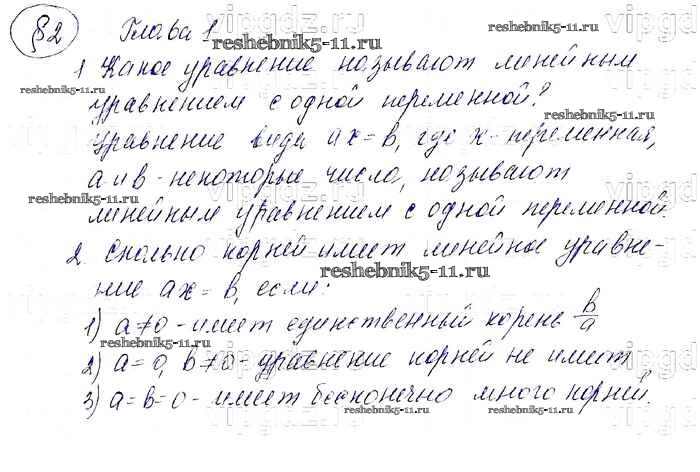 §2 Глава 1
1 Какое уравнение называют линейным
уравнением с одной переменной?
Уравнение вида ax = b, где x - переменная,
a и b - некоторые числа, называют
линейным уравнением с одной переменной.
2. Сколько корней имеет линейное уравне-
ние ax = b, если:
1) a ≠ 0 - имеет единственный корень b/a
2) a = 0, b ≠ 0 - уравнение корней не имеет
3) a = b = 0 - имеет бесконечно много корней.
reshebnik5-11.ru
reshebnik5-11.ru
reshebnik5-11.ru
reshebnik5-11.ru
reshebnik5-11.ru
reshebnik5-11.ru
reshebnik5-11.ru
reshebnik5-11.ru